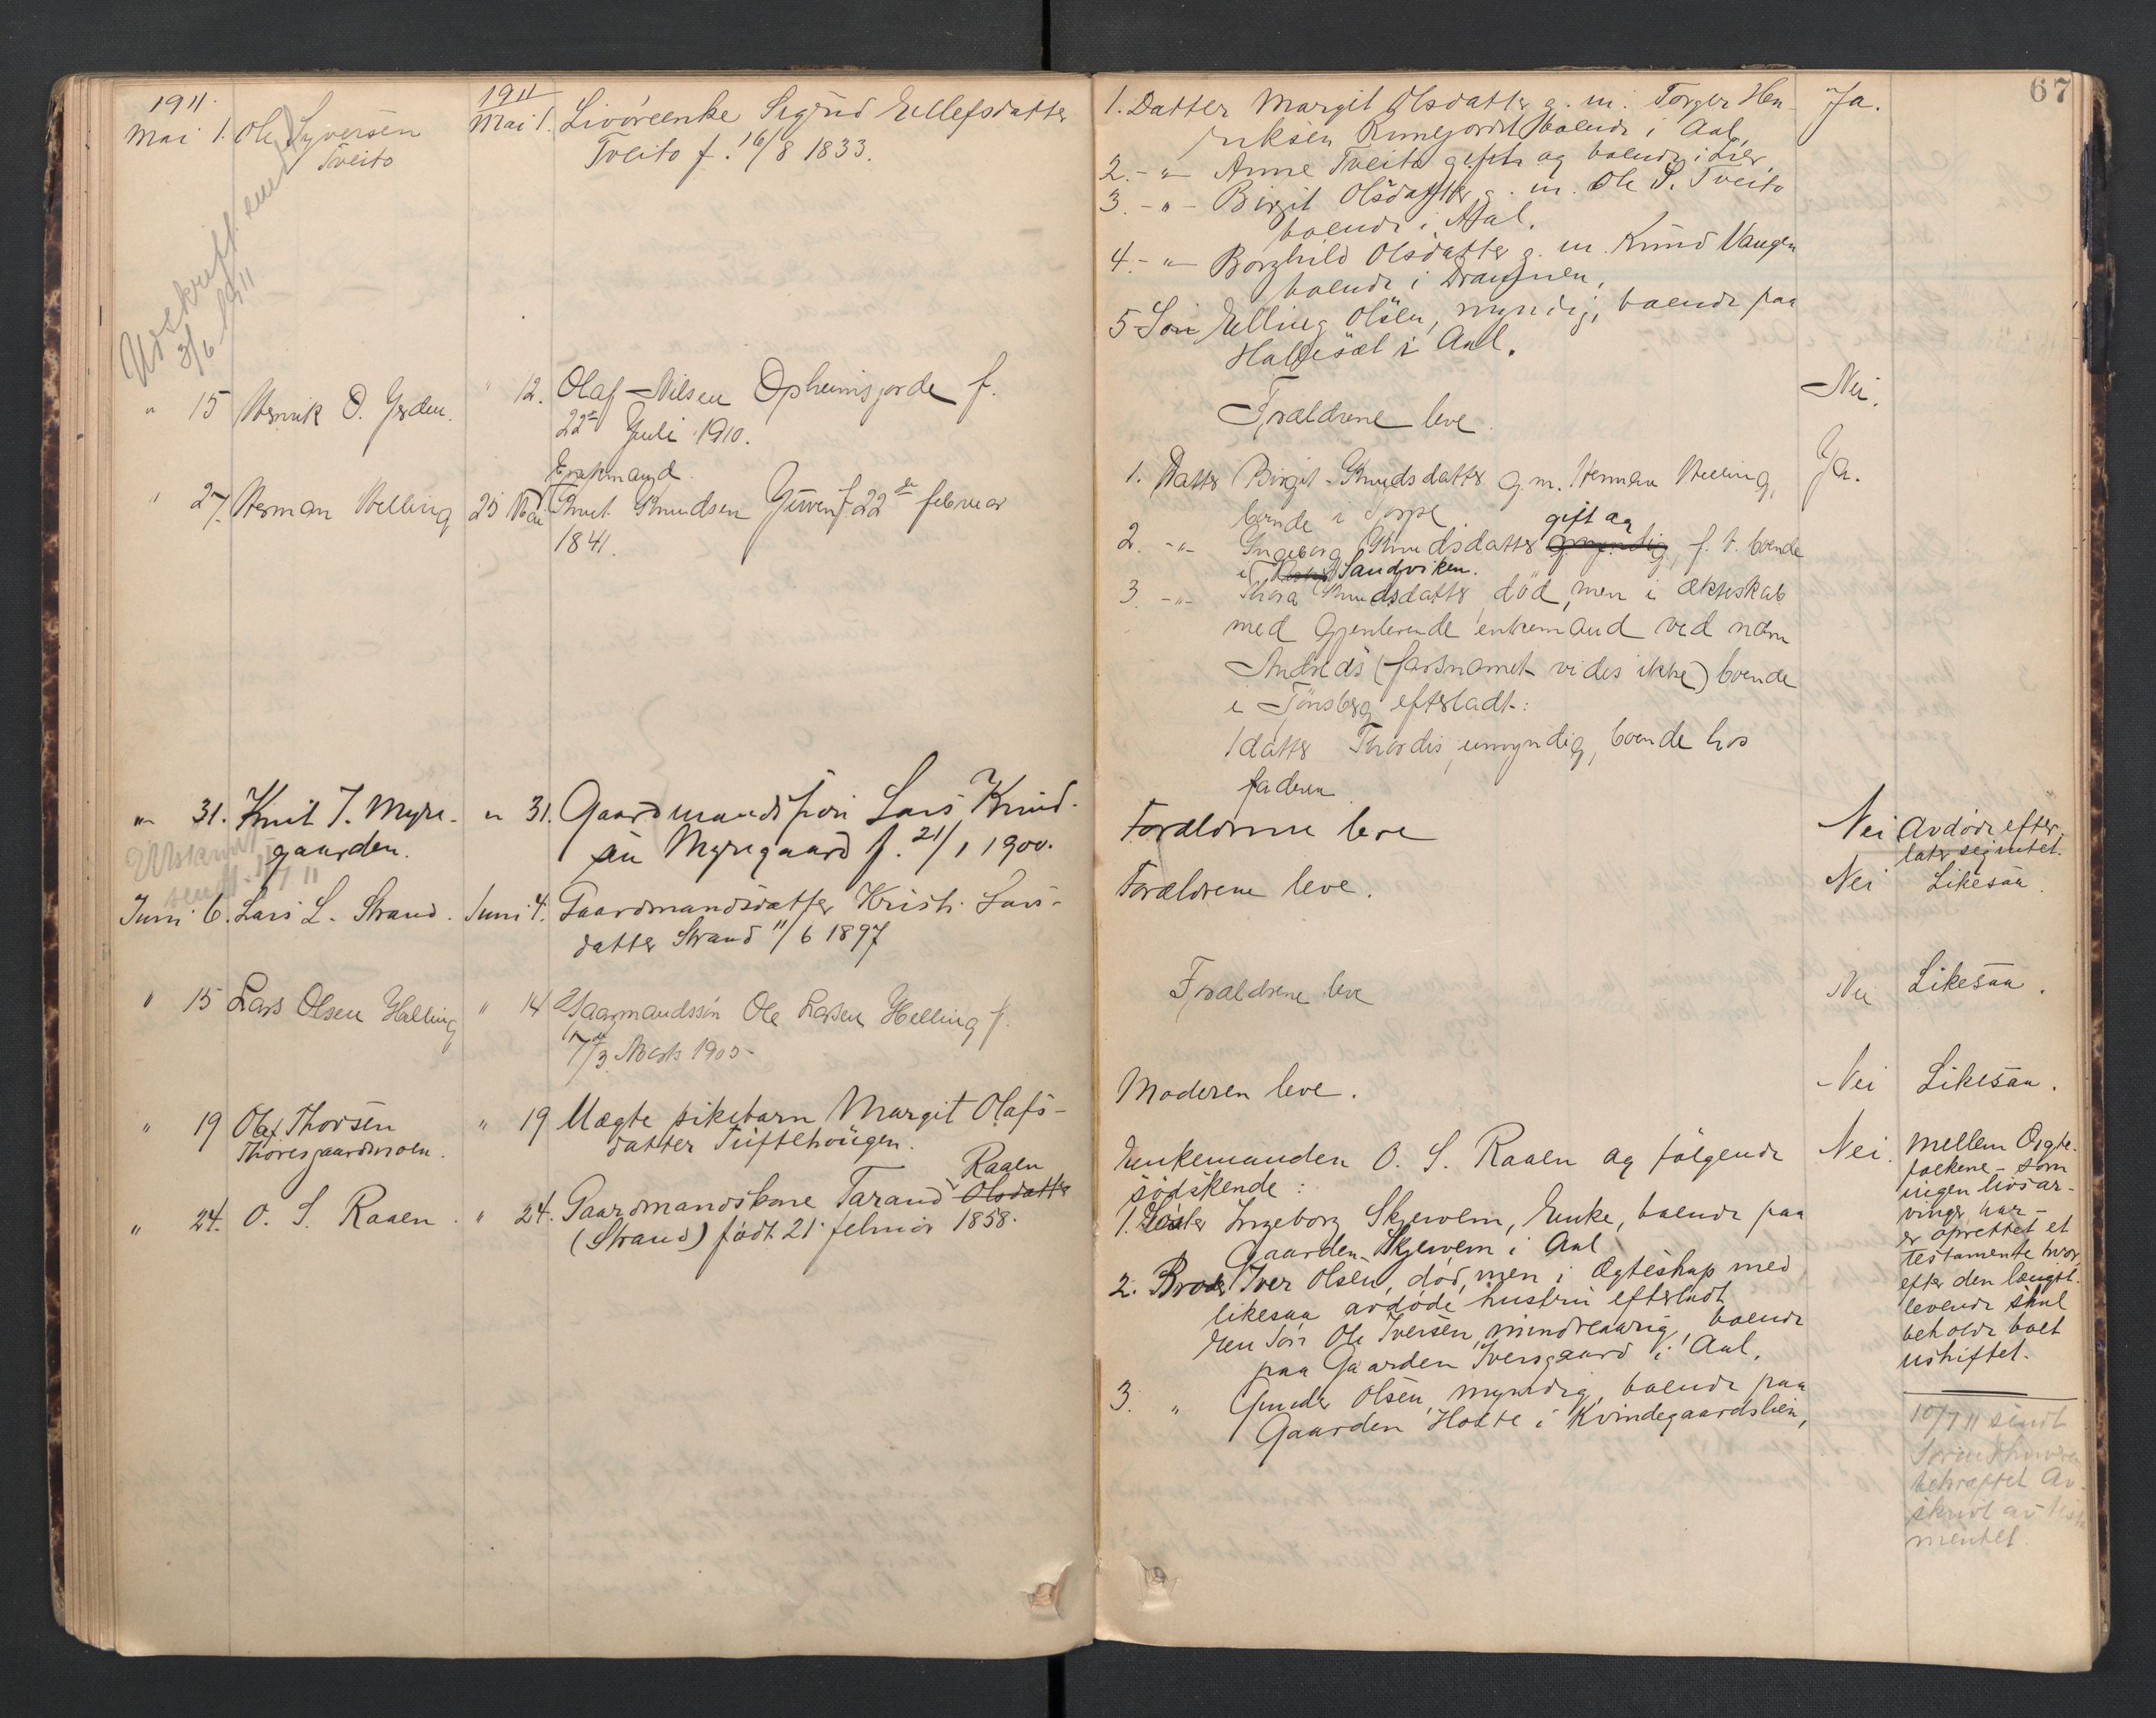 67
1911.
Mai 1. Ole Syversen
Tveito
1911
Mai 1. Livöreenke Sigrid Ellefsdatter
Tveito f. 16/8 1833.
1. Datter Margit Olsdatter g. m. Torger Hen-
riksen boende i Aal,
2. -"- Anne Tveito gift og boende i Lier
3. -"- Birgit Olsdatter g. m. Ole S. Tveito
boende i Aal.
4. -"- Borghild Olsdatter g. m. Knud Vangen
boende i Drammen,
5 Sön Elling Olsen, myndig, boende paa
i Aal.
Ja.
Utskrift sendt
3/6 1911
" 15 Henrik O. Jorden.
" 12. Olaf Nilsen Opheimsjorde f.
22de Juli 1910.
Forældrene leve.
Nei.
" 27. Herman Helling
25 Mai Enkemand
Knut Knudsen f. 22de februar
1841.
1. Datter Birgit Knudsdatter g. m. Herman Helling,
boende i Torpe
2. -"- Ingeborg Knudsdatter gift og f. t. boende
i Sandviken.
3 -"- Thora Knudsdatter död, men i ækteskab
med gjenlevende enkemand ved navn
Andreas (farsnamet vides ikke) boende
i Tönsberg efterladt:
1 datter Thordis, umyndig, boende hos
faderen
Ja.
" 31. Knut T. Myre-
gaarden.
" 31. Gaardmandssön Lars Knud-
sen Myregaard f. 21/1 1900.
Forældrene leve
Nei Avdöde efter-
later sig intet.
Utskrift
sendt 1/7 11
Juni 6. Lars L. Strand.
Juni 4. Gaardmandsdatter Kristi Lars-
datter Strand 11/6 1897
Forældrene leve.
Nei Likesaa
" 15 Lars Olsen Helling
" 14 Gaarmandssön Ole Larsen Helling f.
17de/3 Marts 1905.
Forældrene leve
Nei Likesaa.
" 19 Olaf Thorsen
Thoresgaardmoen.
" 19 Uægte pikebarn Margit Olafs-
datter Tuftehougen.
Moderen leve.
Nei Likesaa.
" 24. O. S. Raaen.
" 24. Gaardmandskone Tarand Raaen Olsdatter
(Strand) født 21 februar 1858.
Enkemanden O. S. Raaen og fölgende
södskende:
1. Söster Ingeborg Skjervem, Enke, boende paa
Gaarden Skjervem i Aal
2. Broder Iver Olsen, död, men i Ægteskap med
likesaa avdöde hustru efterladt
en Sön Ole Iversen, mindreaarig, boende
paa Gaarden Iversgaard i Aal.
3. " Gunder Olsen, myndig, boende paa
Gaarden Holte i Kvindegaardslien,
Nei. Mellem Ægte-
folkene - som
ingen livsar-
vinger har -
er oprettet et
testamente hvor-
efter den længst-
levende skal
beholde boet
uskiftet.
10/7 11 sendt
Sorenskriveren
bekræftet Av-
skrift av testa-
mentet